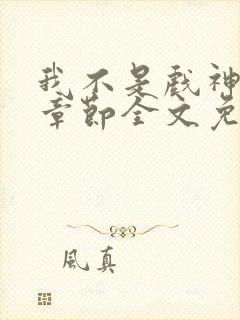 我不是戏神
章节全文免
風真